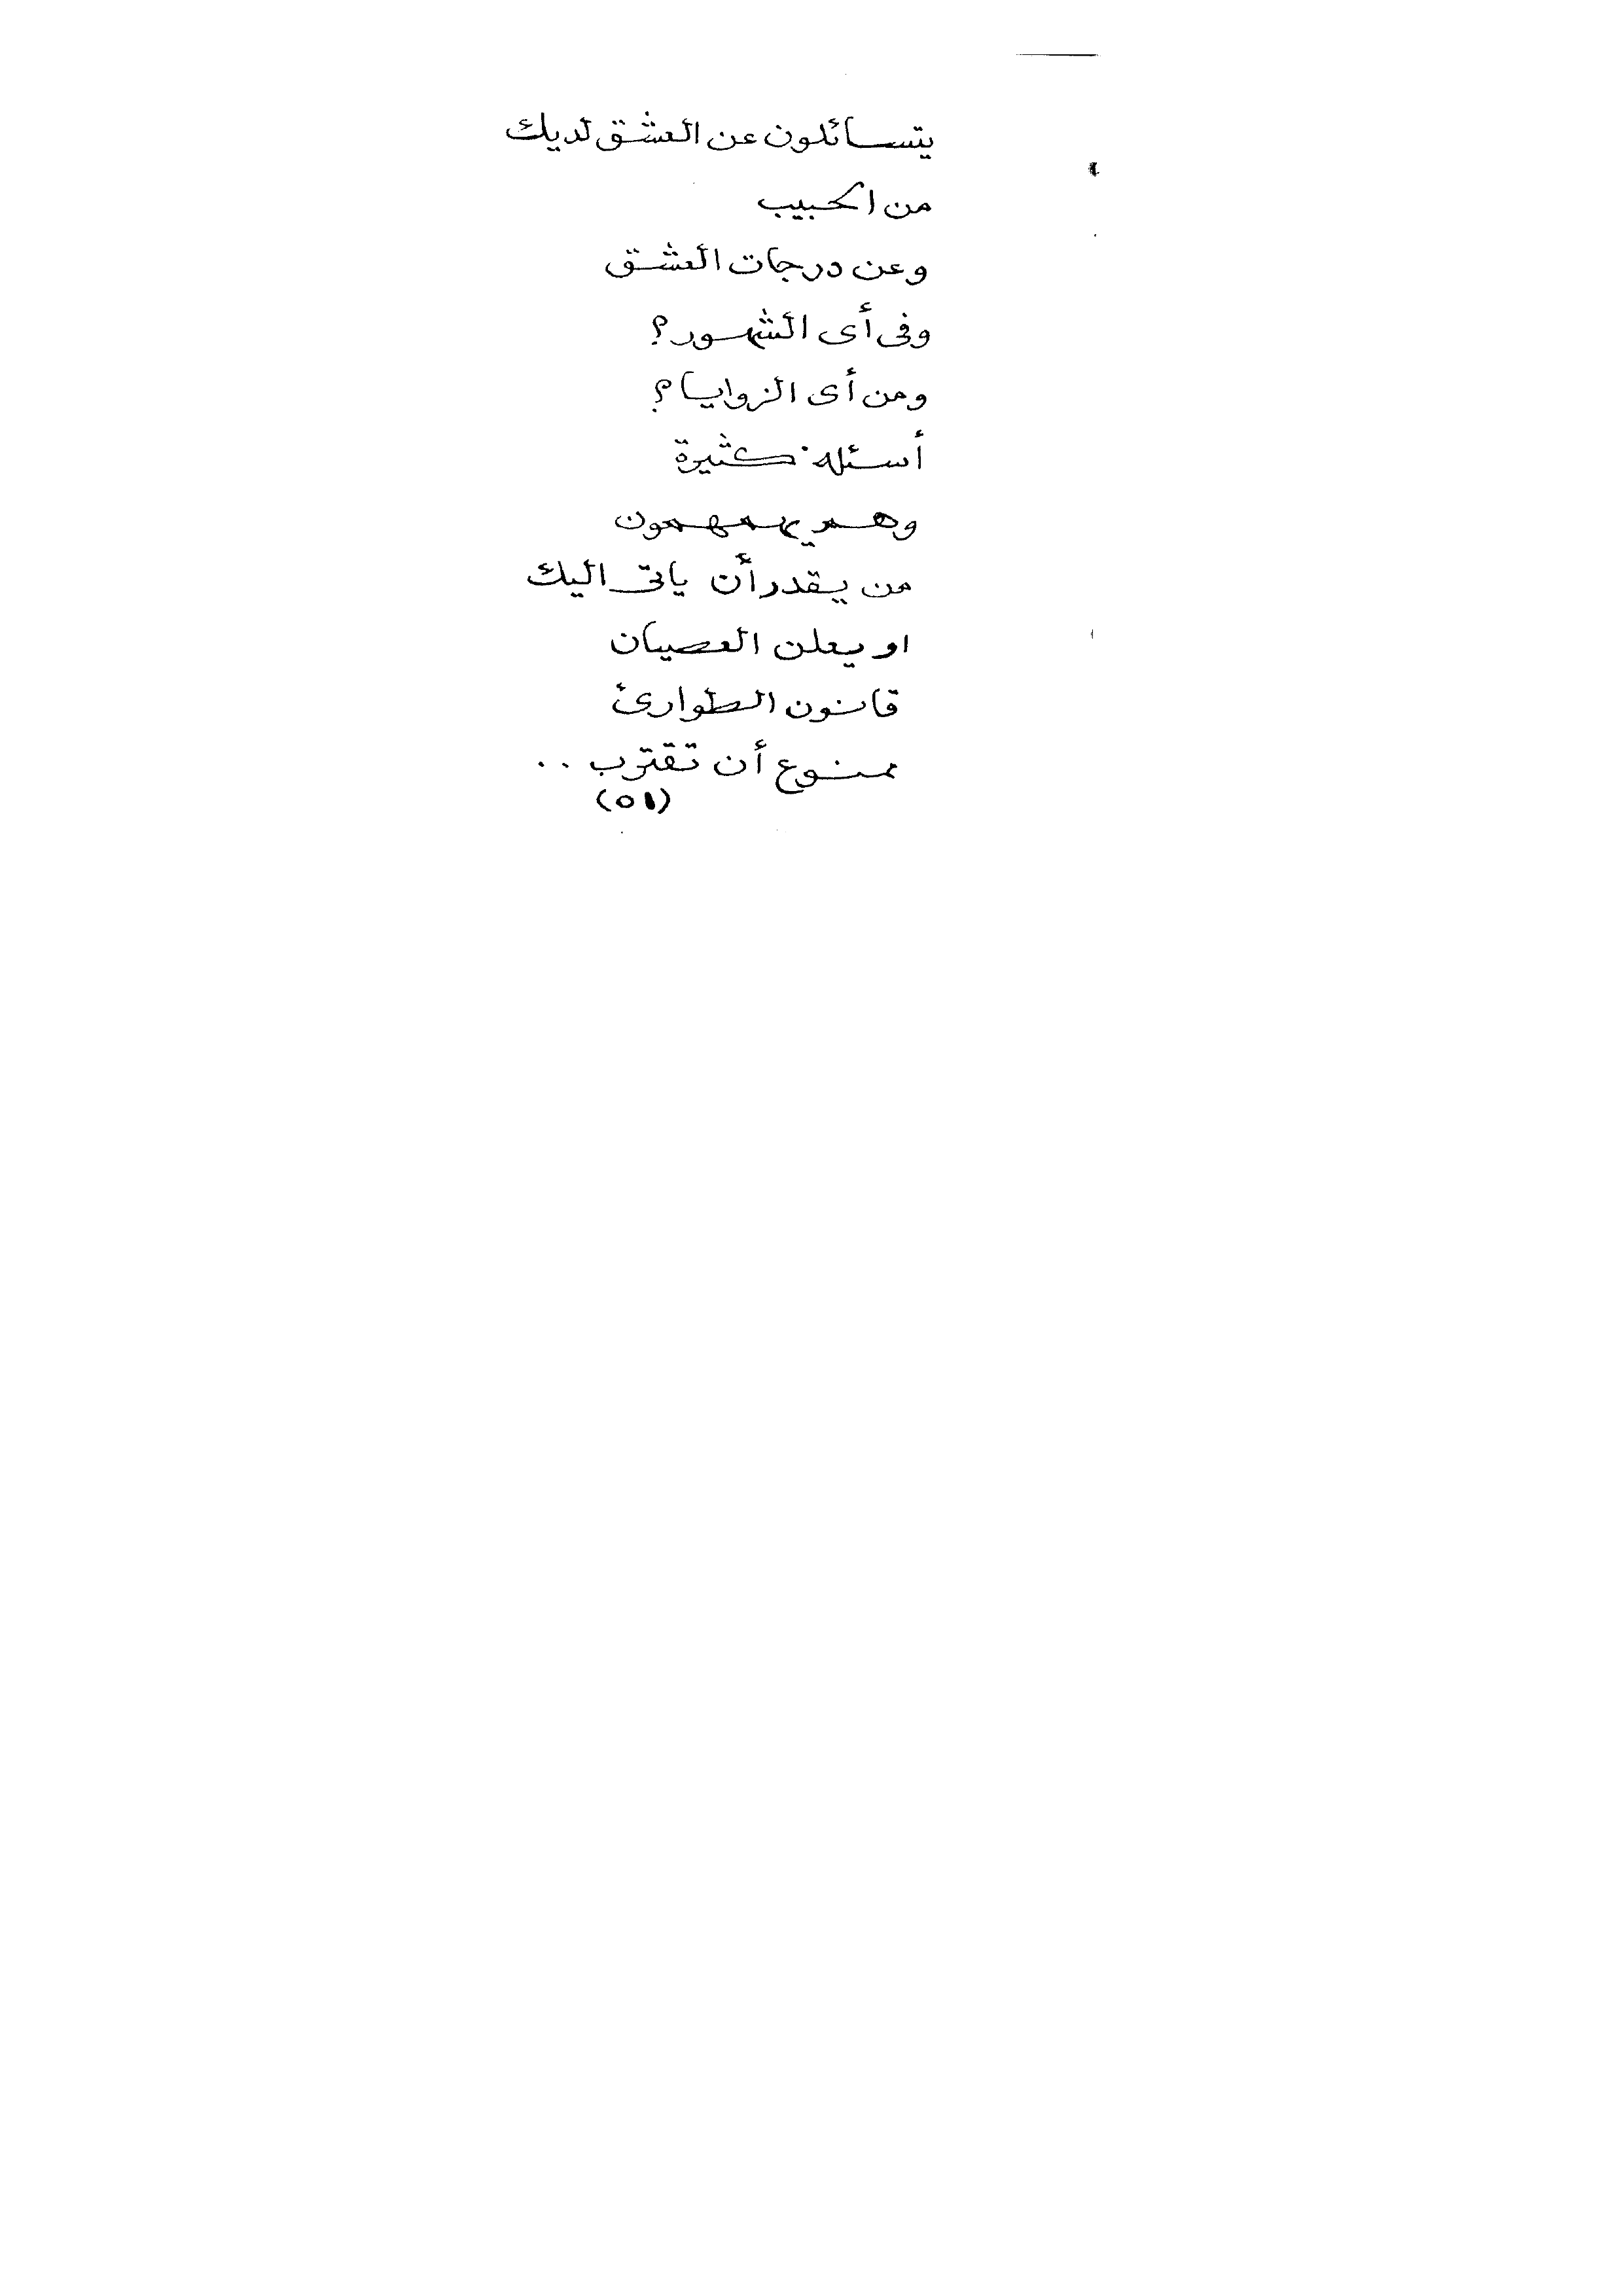 يتسائلون عن العشق لديك
من الحبيب
وعن درجات العشق
وفى أى الشهور؟
ومن أى الزوايا؟
أسئله كثيرة
وهم يهمهمون
من يقدر أن ياتى اليك
او يعلن العصيان
قانون الطوارئ
ممنوع أن تقترب ..
(٥١)